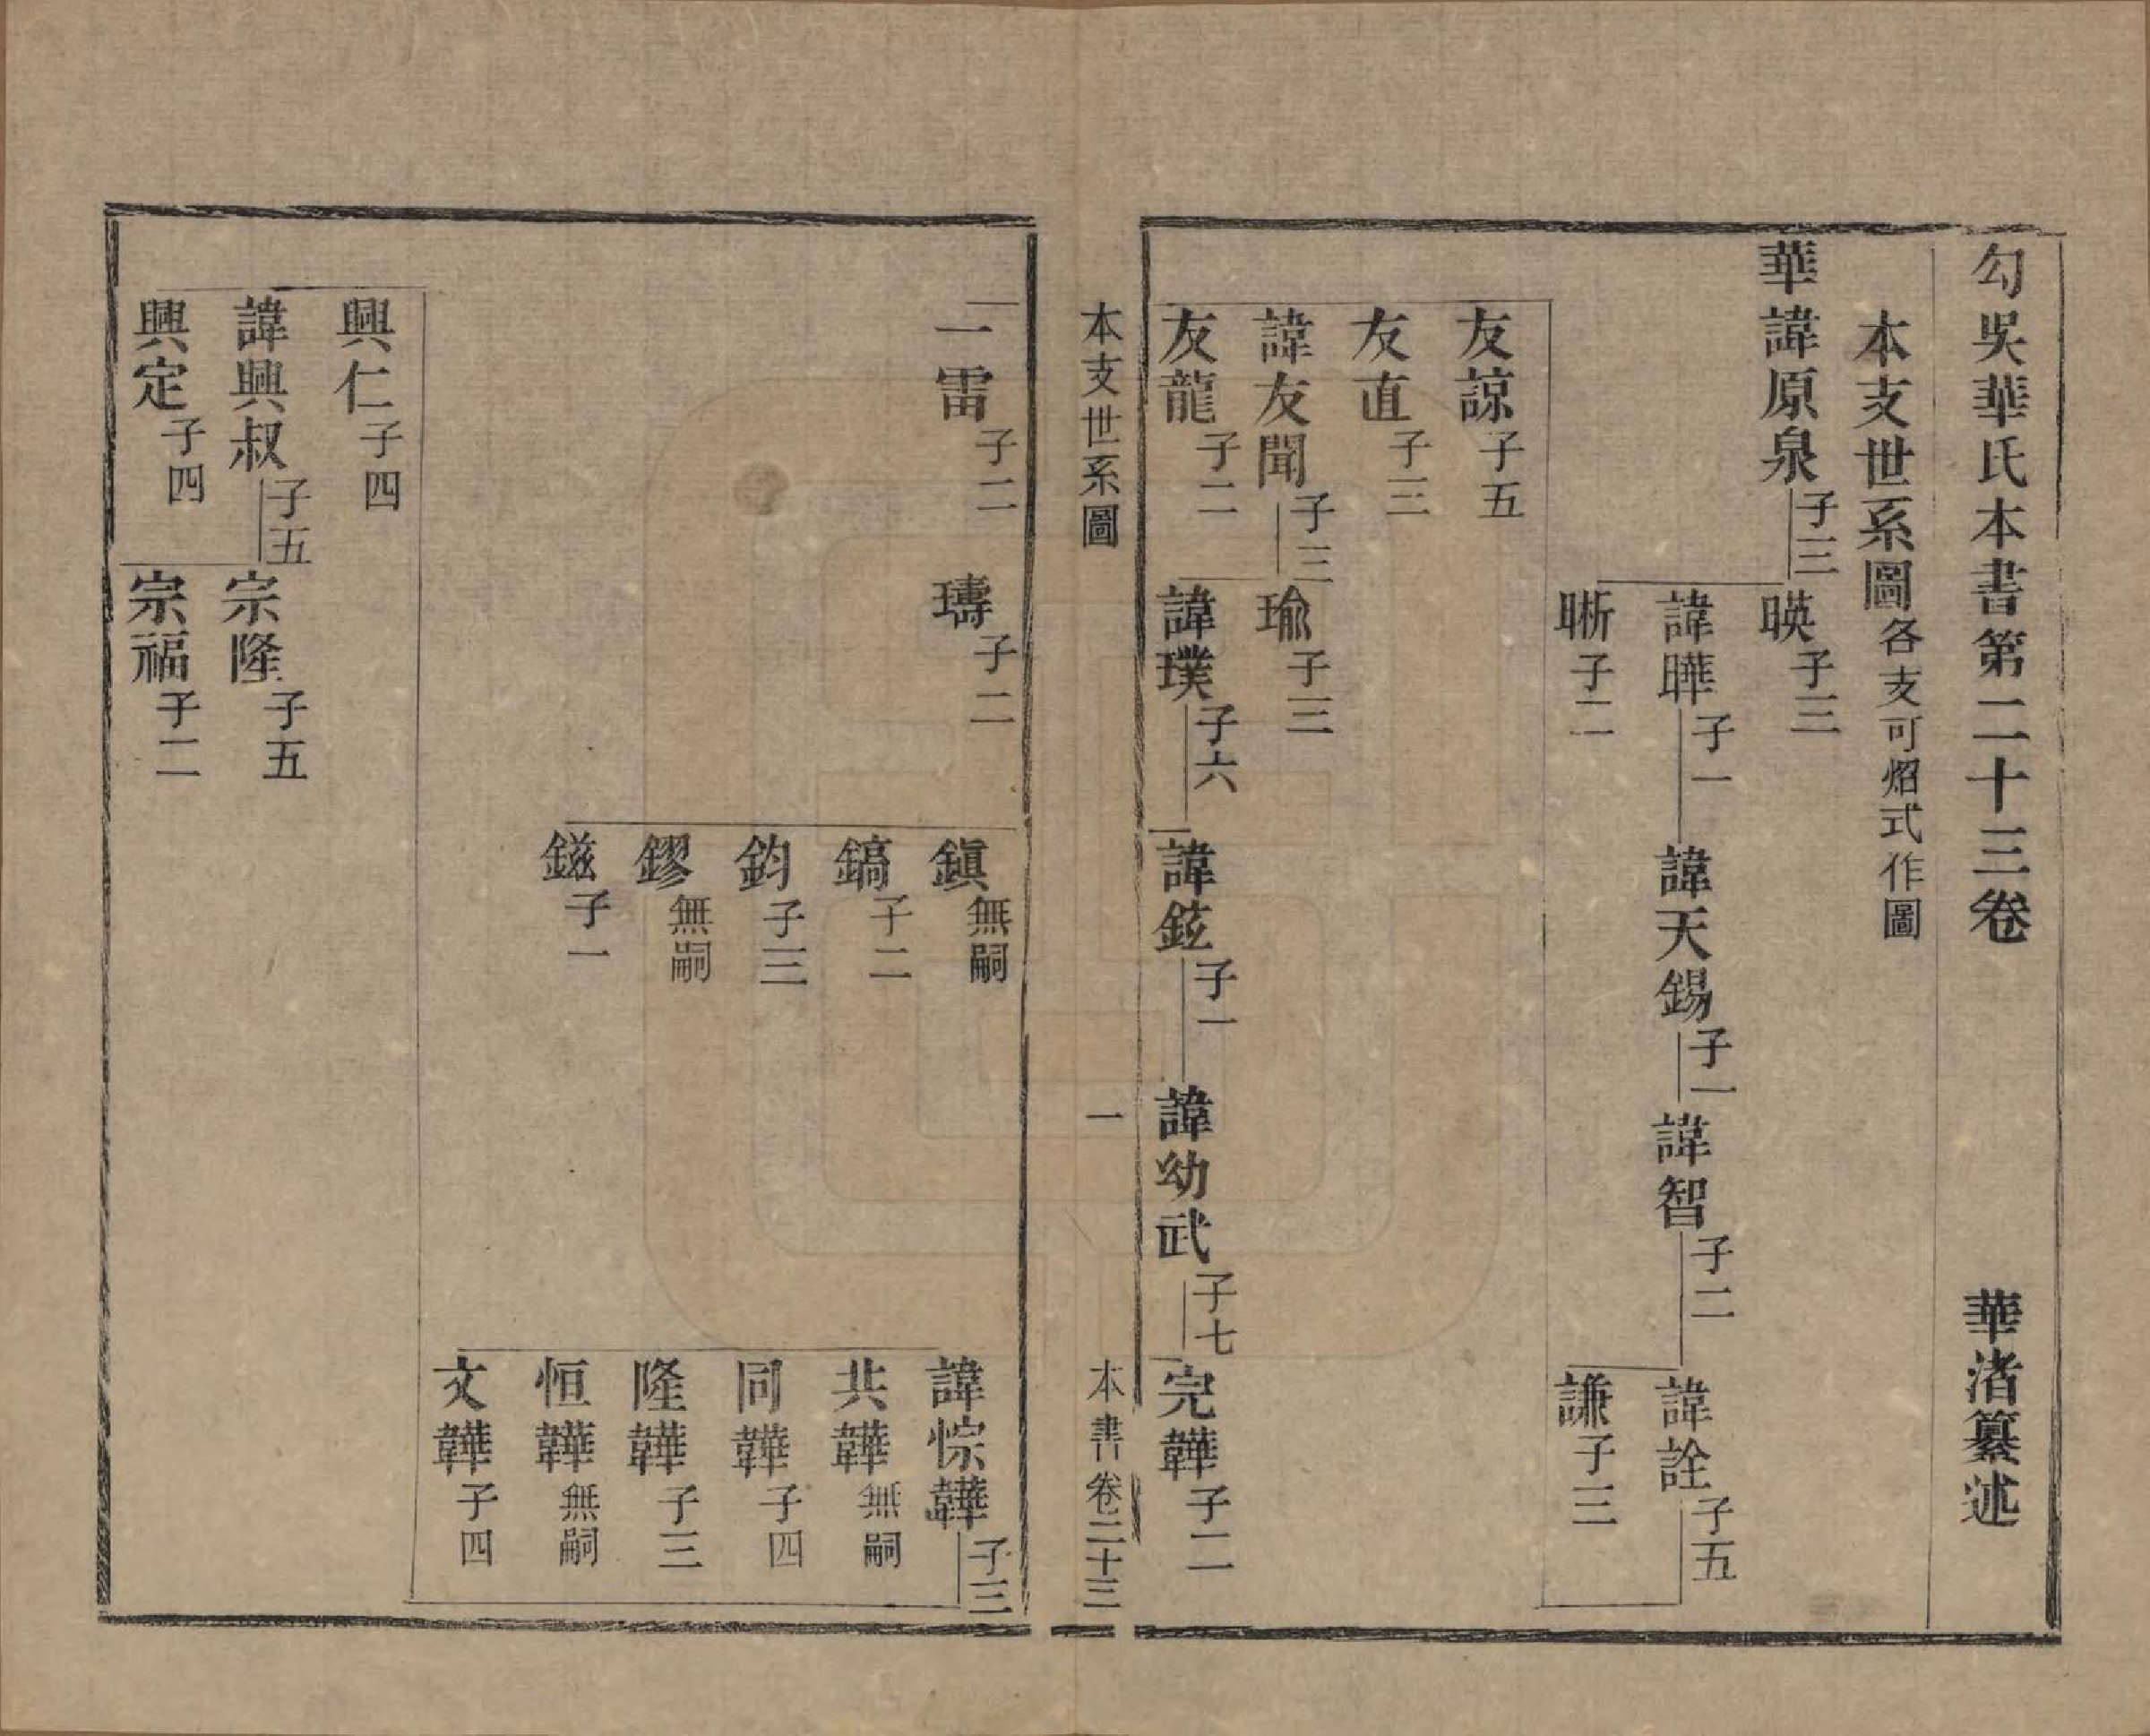 勾吳華氏本書第二十三卷
華渚纂述
本支世系圖各支可炤式作圖
華諱原泉子三
暎子三
諱曄子一
諱天錫子一
諱智子二
諱詮子五
晣子二
謙子三
友諒子五
友直子三
諱友聞子三
瑜子三
友龍子二
諱璞子六
諱鉉子一
諱幼武子七
完韡子二
本支世系圖
一
本書卷二十三
一雷子二
璹子二
鎭無嗣
諱悰韡子三
鎬子二
共韡無嗣
鈞子三
同韡子四
鏐無嗣
隆韡子三
鎡子一
恒韡無嗣
文韡子四
興仁子四
諱興叔子五
宗隆子五
興定子四
宗福子二